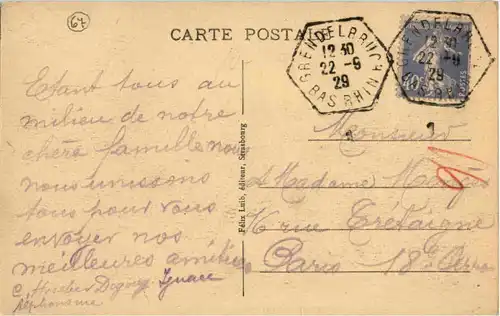 67
CARTE POSTALE
GRENDELBRUCH
12 30
22 - 9
29
BAS RHIN
GRENDELBRUCH
12 30
22 - 9
29
BAS RHIN
40
Etant tous au
milieu de notre
chère famille nous
nous unissons
tous pour vous
envoyer nos
meilleures amitiés
Ignace
Alphonsine
Félix Luib, éditeur, Strasbourg
Monsieur
et Madame
16 rue Trétaigne
Paris 18e Arron